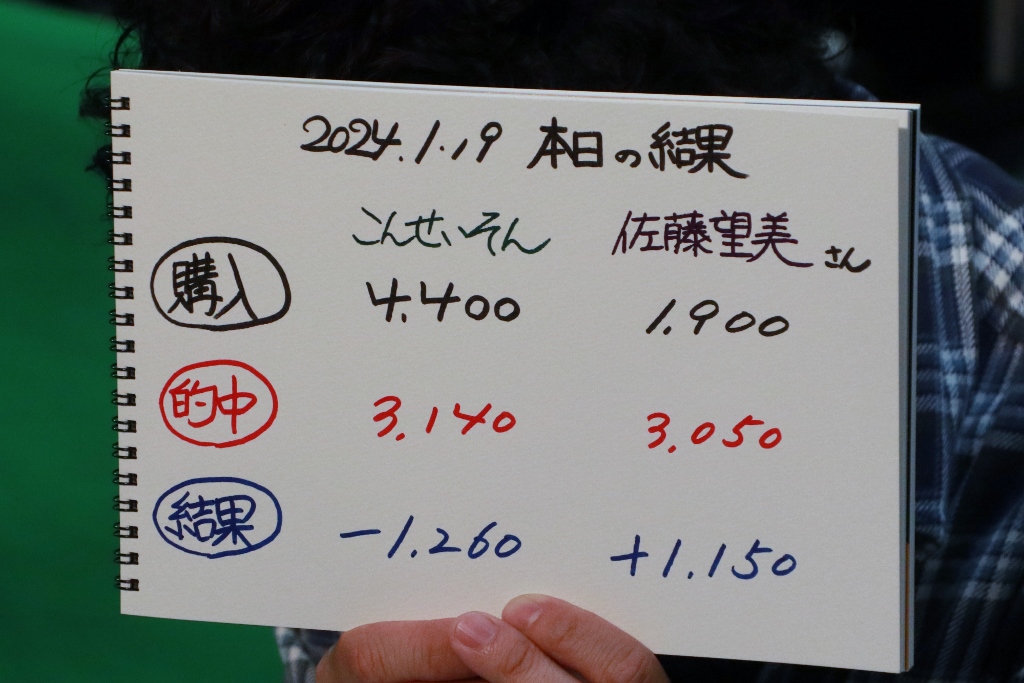 2024.1.19 本日の結果
こんせいそん 佐藤望美さん
購入 4.400 1.900
的中 3.140 3.050
結果 -1.260 +1.150